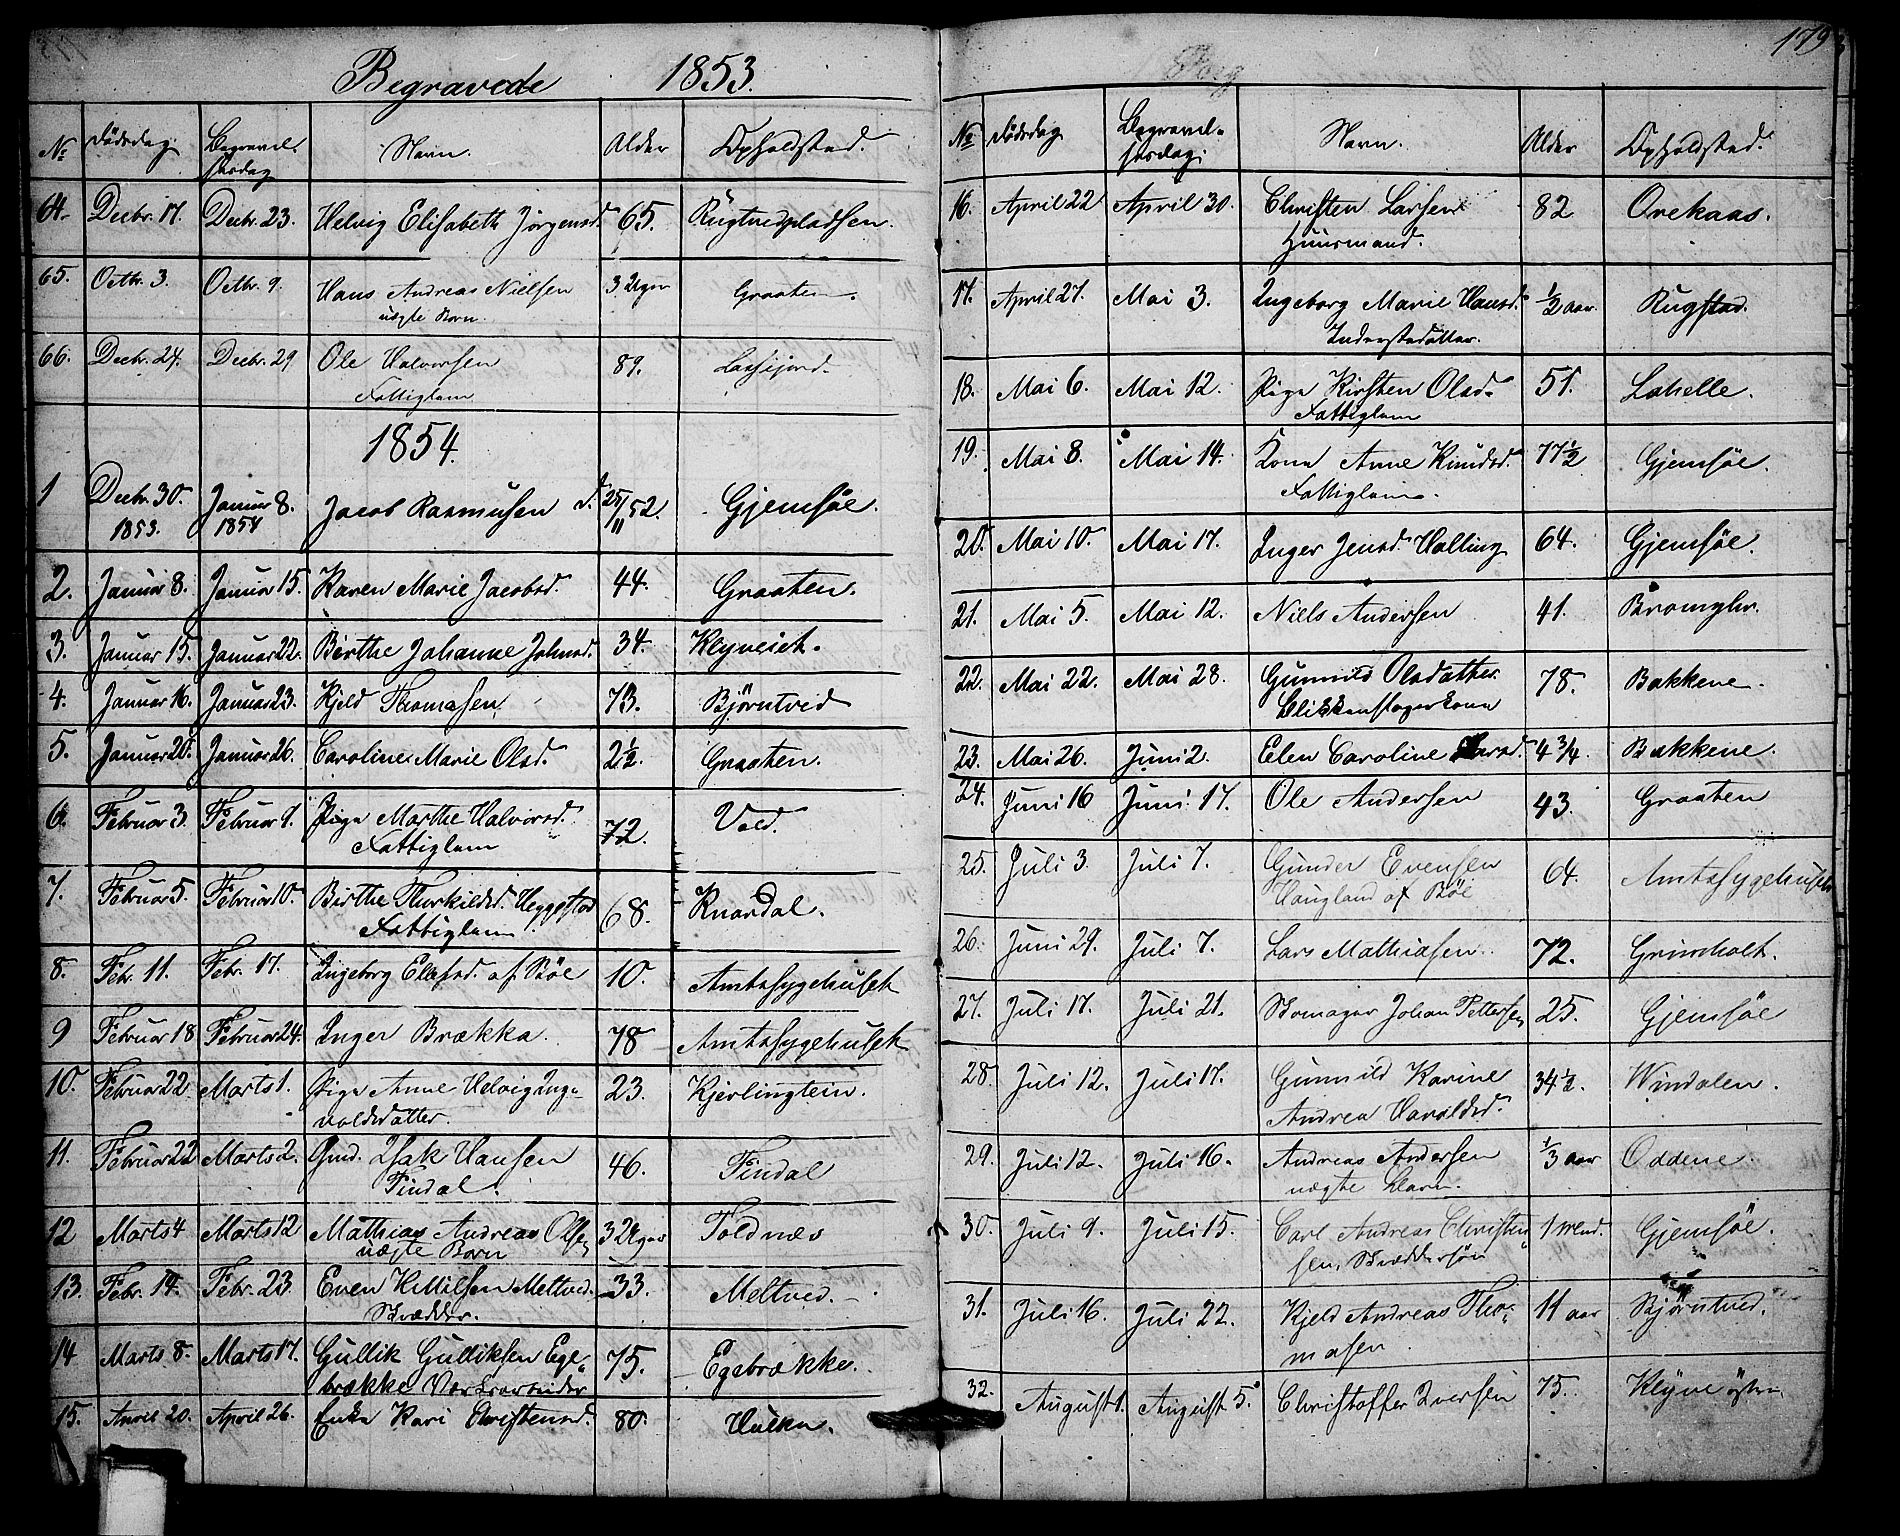 Begravede 1853.
No Dödsdag Begravelsesdag Navn. Alder Opholdsted.
64. Decbr. 17. Decbr. 23. Helvig Elisabeth Jörgensd. 65. Rugtvedpladsen.
65. Octbr. 3. Octbr. 9. Hans Andreas Nielsen 3 Uger Graaten.
uægte Barn.
66. Decbr. 24. Decbr. 29 Ole Halvorsen 89.
Fattiglem
1854.
1 Decbr. 30. Januar 8. Jacob Rasmusen d. 25/11 52. Gjemsöe.
1853. 1854
2. Januar 8. Januar 15. Karen Marie Jacobsd. 44. Graaten.
3. Januar 15. Januar 22. Birthe Johanne Johnsd. 34. Klyveiet.
4. Januar 16. Januar 23. Kjeld Thomasen 73. Björntvid
5. Januar 20. Januar 26. Caroline Marie Olsd. 2½. Graaten.
6. Februar 3. Februar 9. Pige Marthe Halvorsd. 72. Vold.
Fattiglem
7. Februar 5. Februar 10. Birthe Thorkildsd. Heggstad 68. Knardal.
Fattiglem
8. Febr. 11. Febr. 17. Ingeborg Elefsd. af Böe 10. Amtssygehuset
9 Februar 18 Februar 24. Inger Brækka. 78 Amtssygehuset
10. Februar 22. Marts 1. Pige Anne Helvig Ing- 23. Kjerlingtein.
voldsdatter.
11. Februar 22 Marts 2. Gmd. Isak Hansen 46. Findal
Findal.
12 Marts 4 Marts 12 Mathias Andreas Olsen 3 Uger Foldnæs
uægte Barn
13. Febr. 14. Febr. 23. Even Killilsen Meltved. 33. Meltved.
Skrædder.
14 Marts 8. Marts 17. Gullik Gulliksen Ege- 75. Egebrække.
brække
15. April 20. April 26. Enke Kari Christensd. 80. Hulka.
179
No Dödsdag Begravelsesdag Navn. Alder Opholdsted.
16. April 22 April 30. Christen Larsen 82 Orekaas.
Huusmand.
17. April 27. Mai 3. Ingeborg Marie Hansd. ½ aar. Rugstad.
Inderstedatter.
18. Mai 6. Mai 12. Pige Kirsten Olsd. 51. Lahelle.
Fattiglem
19. Mai 8. Mai 14. Kone Anne Knudsd. 77½ Gjemsöe.
Fattiglem.
20. Mai 10. Mai 17. Inger Jensd. Halling 64. Gjemsöe.
21. Mai 5. Mai 12. Niels Andersen 41.
22. Mai 22. Mai 28. Gunnild Olsdatter 78. Bakkene.
Blikkenslagerkone
23. Mai 26. Juni 2. Elen Caroline 4 3/4. Bakkene.
24. Juni 16 Juni 17. Ole Andersen 43. Graaten
25. Juli 3. Juli 7. Gunder Evensen 64. Amtssygehuset
Haugland af Böe
26. Juni 29. Juli 7. Lars Mathiasen. 72. Griniholt.
27. Juli 17. Juli 21. Skomager Johan Pettersen 25. Gjemsöe
28. Juli 12. Juli 17. Gunnild Karine 34½. Windalen.
Andrea Haraldsd.
29. Juli 12. Juli 16. Andreas Andersen 1/3 aar Oddene.
uægte Barn.
30. Juli 9. Juli 15. Carl Andreas Christen- 1 Mnd. Gjemsöe.
sen, Skræddersön
31. Juli 16. Juli 22. Kjeld Andreas Tho- 11 aar Björntved.
masen.
32. August 1. August 5. Christoffer Iversen 75. Klyve